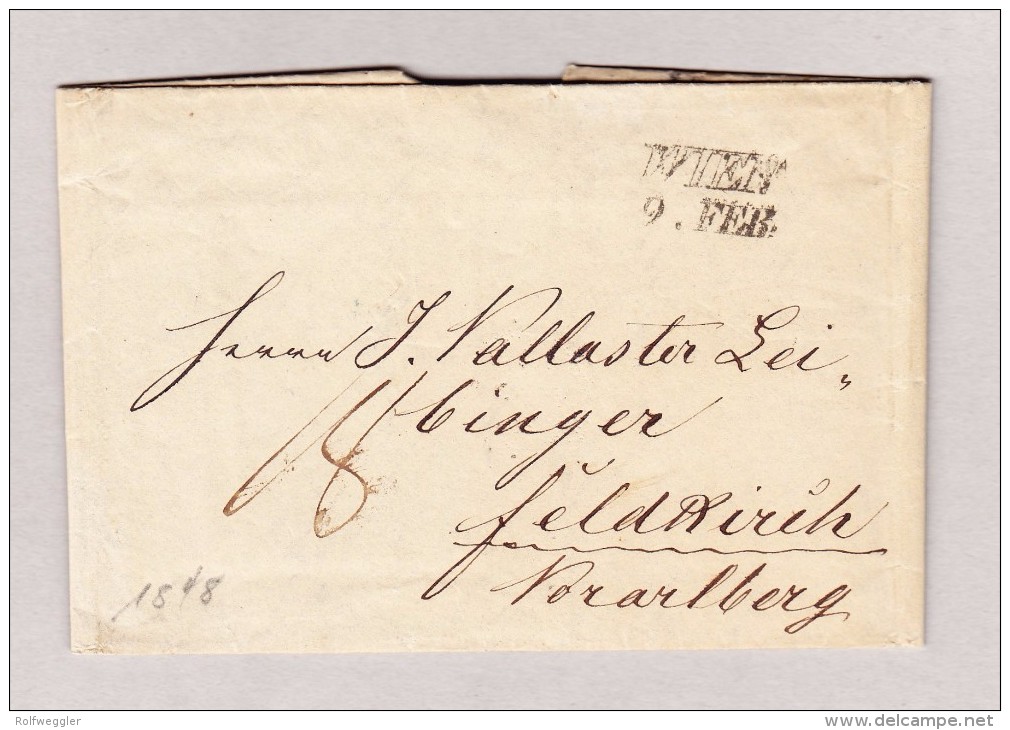 WIEN
9. FEB.
Herrn J. Vallaster Lei„
binger
18
Feldkirch
Vorarlberg
1848
Rolfweggler
delcampe.net